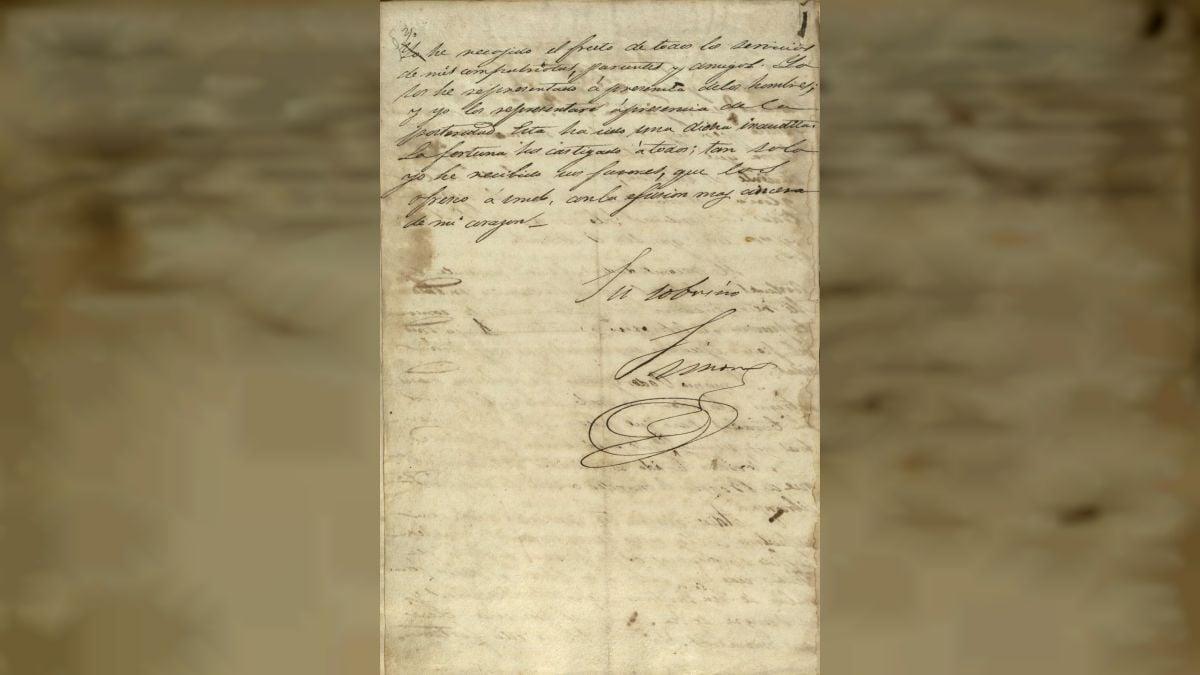 Yo
he recojido el fruto de todos los servicios
de mis compatriotas, parientes y amigos. Yo
los he representado á presencia de los hombres;
y yo los representaré á presencia de la
posteridad. Esta ha sido una dicha inaudita.
La fortuna ha castigado á todos; tan solo
yo he recibido sus favores, que los
ofresco á
con la efusion mas cincera
de mi corazon_
Su sobrino
Simon